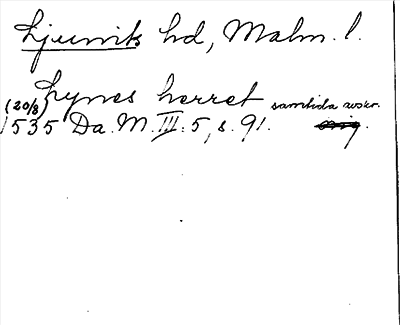 Ljunits hd, Malm. l.
Lynes herret samtida avskr.
(20/8) 1535 Da. M. III: 5, s. 91.